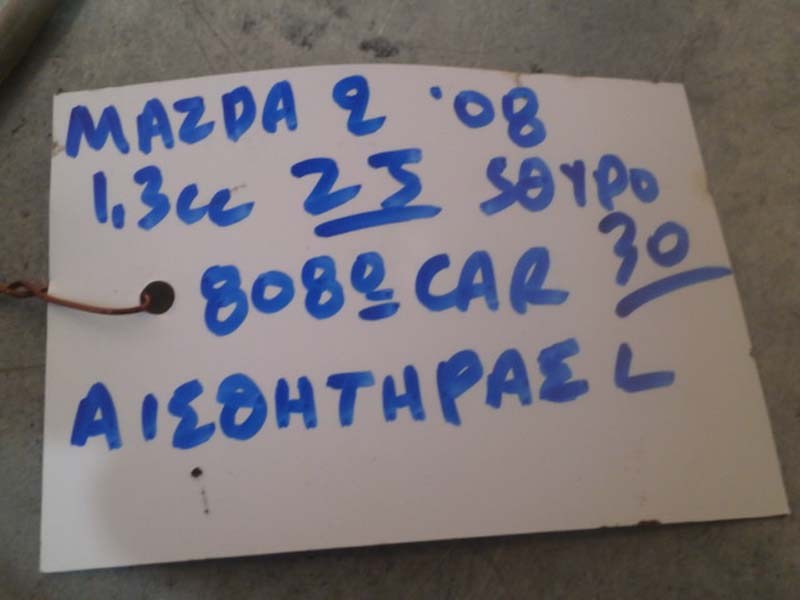 MAZDA 2 '08
1.3cc ΖΣ 5ΘΥΡΟ
808º CAR 30
ΑΙΣΘΗΤΗΡΑΣ L